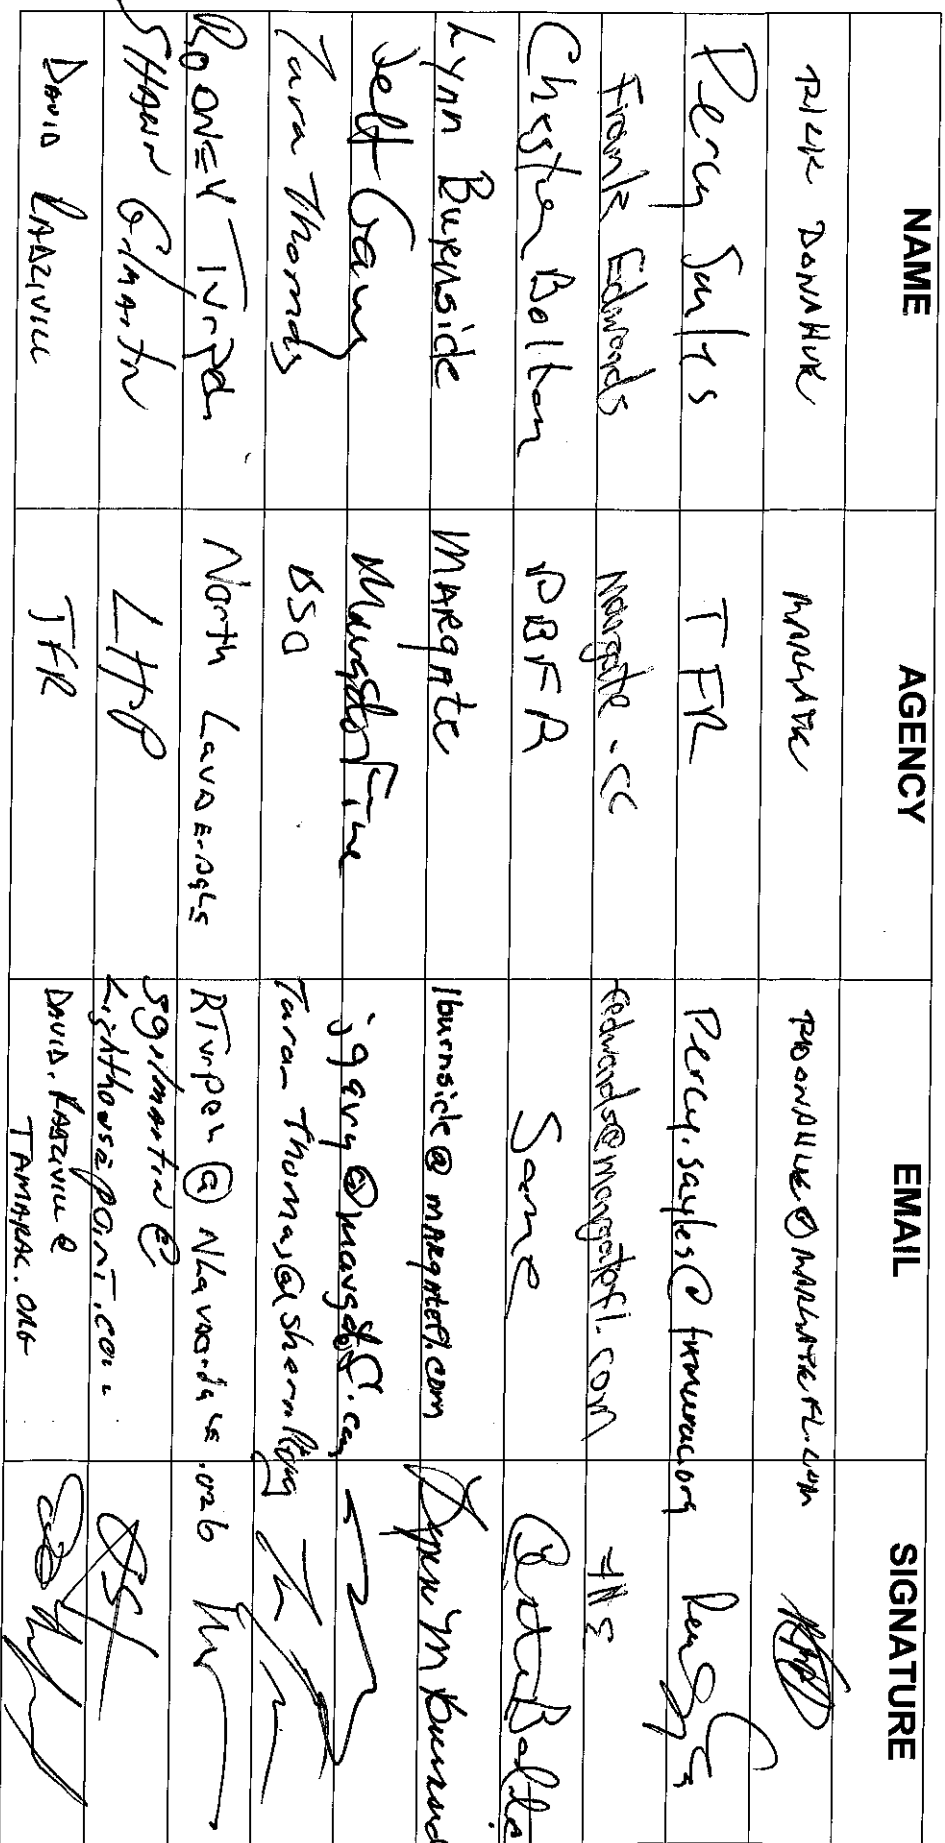 NAME AGENCY EMAIL SIGNATURE
RICK DONAHUE MARGATE RDONAHUE@MARGATEFL.COM
Percy Sayles TFR Percy.sayles@tamarac.org
Frank Edwards Margate.CC fedwards@margatefl.com
Chester Bolton PBFR Same
Lynn Burnside MARgAte lburnside@MARgAtefl.com Lynn M Burnside
Jeff Gary Margate Fire
Tara Thomas BSO Tara_Thomas@sheriff.org
RODNEY Turpel North LAUDErDAlE
SHAWN GilMArtin LHP sgilmartin@
Lighthousepoint.com
DAVID RADZIVILL TFR DAVID.RADZIVILL@
TAMARAC.ORG